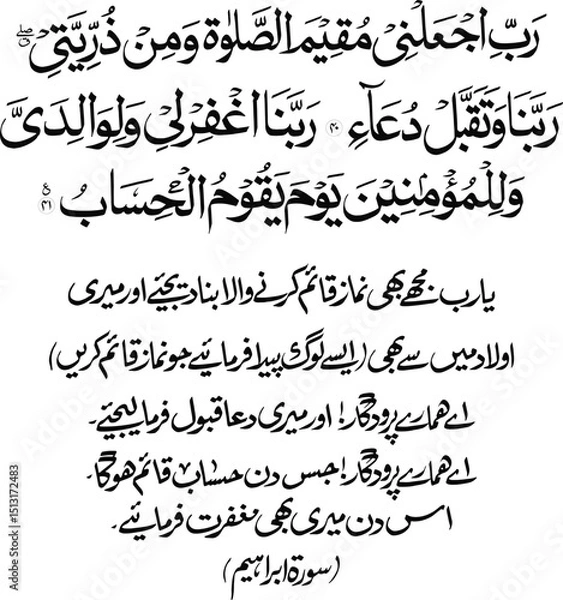 رَبِّ اجْعَلْنِیْ مُقِیْمَ الصَّلٰوةِ وَمِنْ ذُرِّیَّتِیْ ۖق
رَبَّنَا وَتَقَبَّلْ دُعَآءِ ۴۰ رَبَّنَا اغْفِرْلِیْ وَلِوَالِدَیَّ
وَلِلْمُؤْمِنِیْنَ یَوْمَ یَقُوْمُ الْحِسَابُ ۴۱ ع
یارب مجھے بھی نماز قائم کرنے والا بنا دیجئیے اور میری
اولاد میں سے بھی (ایسے لوگ پیدا فرمائیے جو نماز قائم کریں)
اے ہمارے پرودگار! اور میری دعا قبول فرما لیجئیے۔
اے ہمارے پرودگار! جس دن حساب قائم ہوگا۔
اس دن میری بھی مغفرت فرمائیے۔
(سورۃ ابراہیم)
Adobe Stock | #1513172483